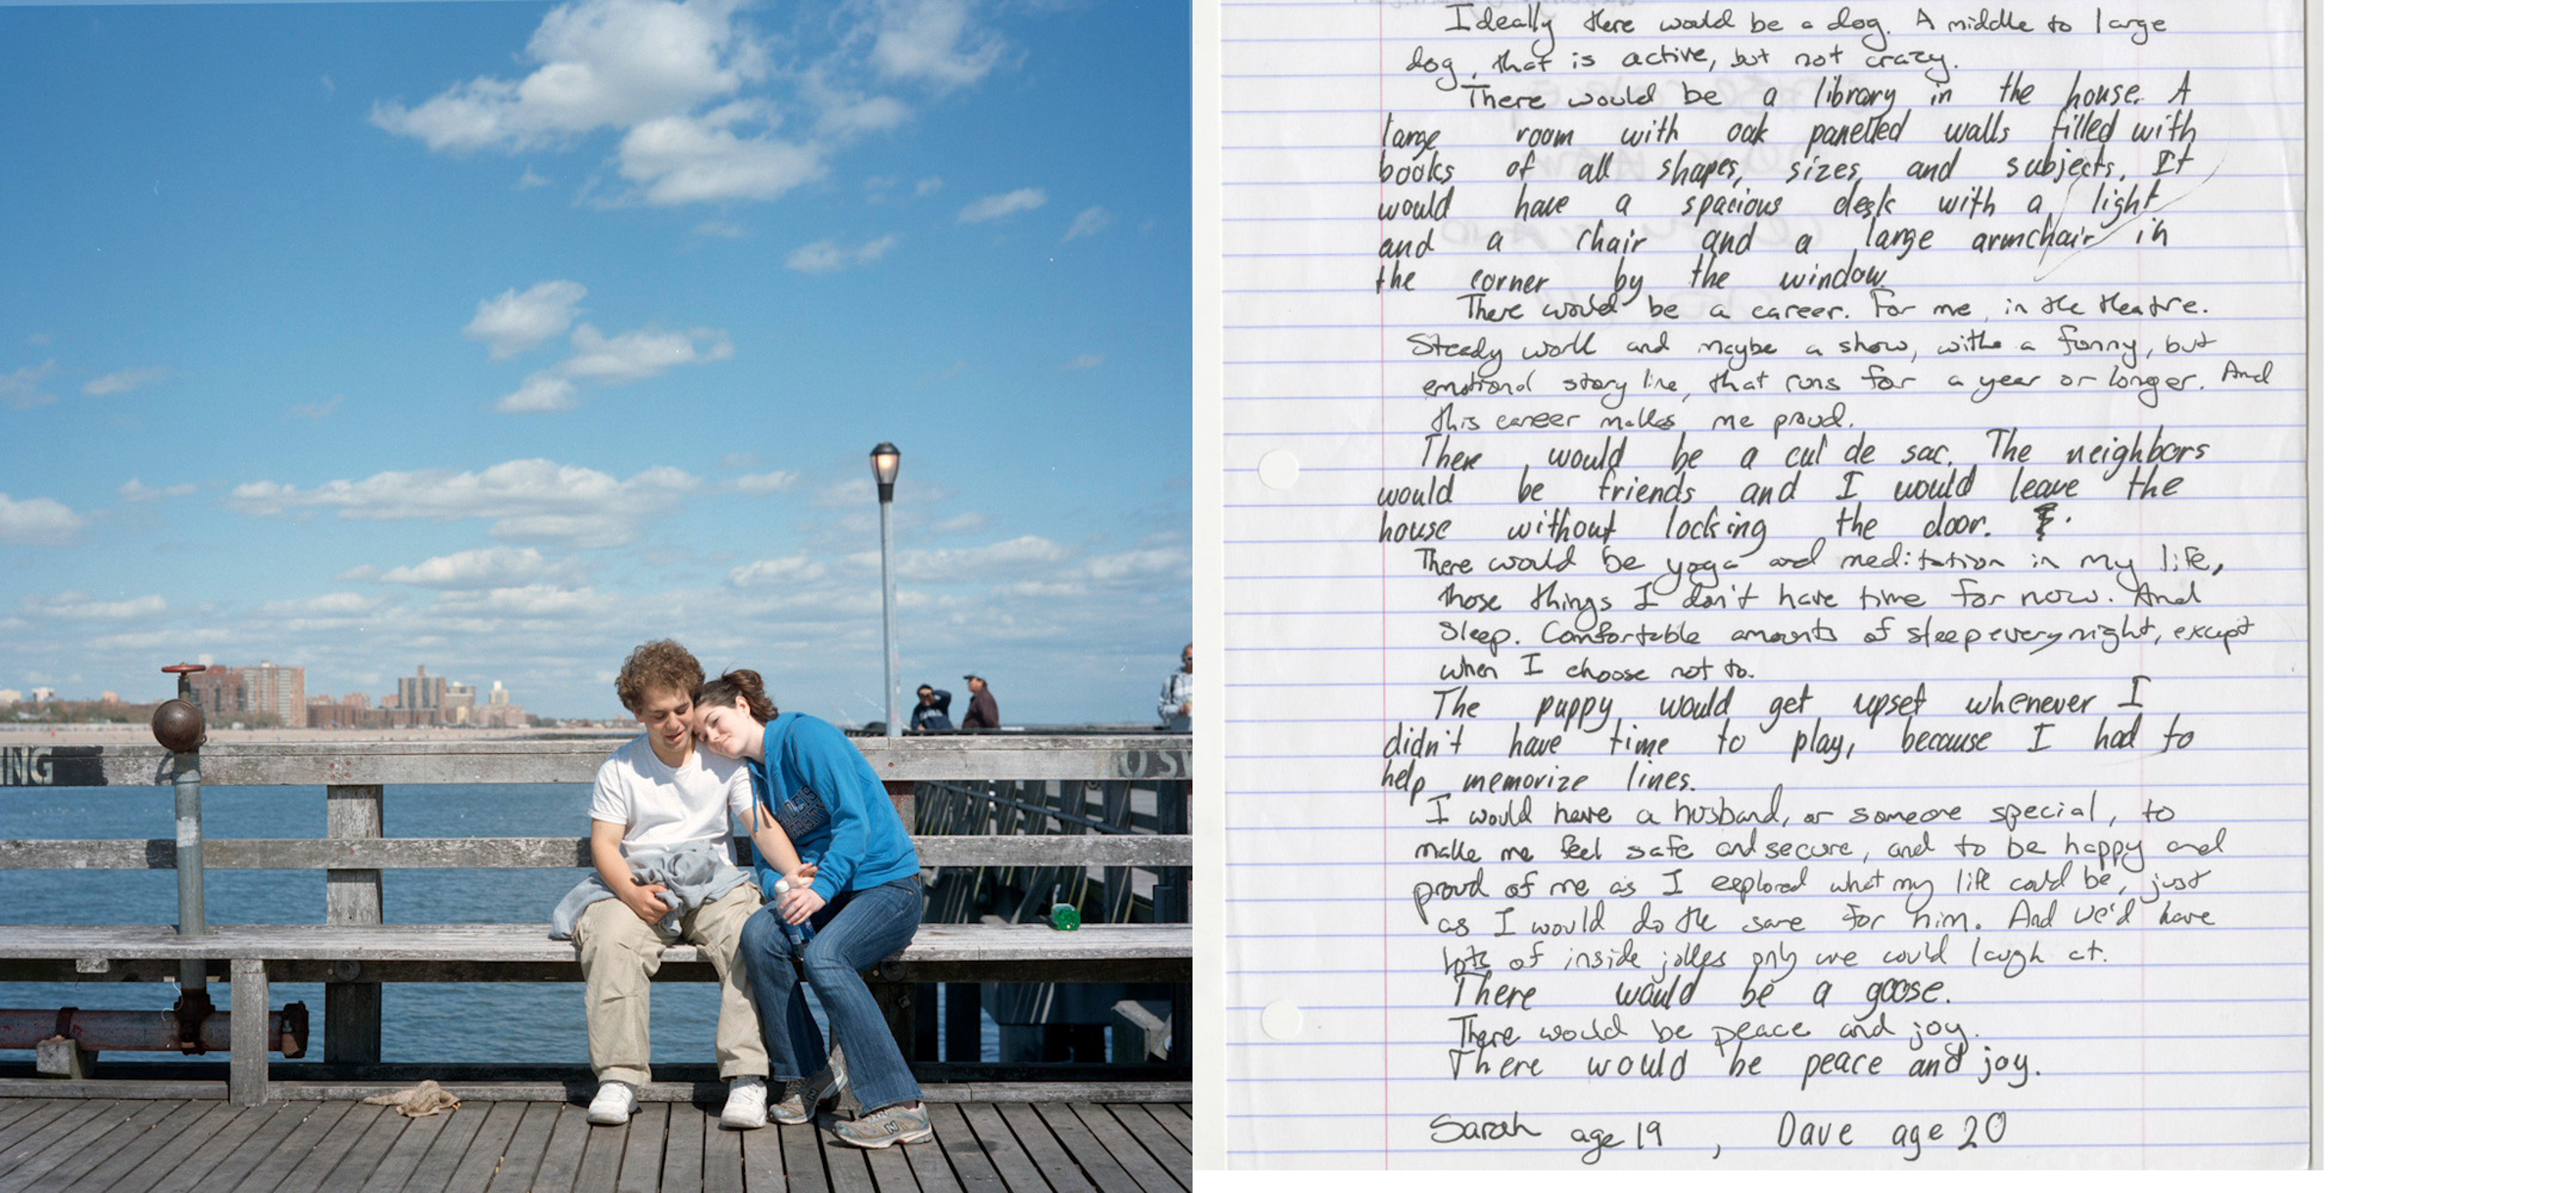 ING
OSW
Ideally there would be a dog. A middle to large
dog, that is active, but not crazy.
There would be a library in the house. A
large room with oak panelled walls filled with
books of all shapes, sizes, and subjects. It
would have a spacious desk with a light
and a chair and a large armchair in
the corner by the window.
There would be a career. For me, in the theatre.
Steady work and maybe a show, with a funny, but
emotional story line, that runs for a year or longer. And
this career makes me proud.
There would be a cul de sac. The neighbors
would be friends and I would leave the
house without locking the door.
There would be yoga and meditation in my life,
those things I don't have time for now. And
sleep. Comfortable amounts of sleep every night, except
when I choose not to.
The puppy would get upset whenever I
didn't have time to play, because I had to
help memorize lines.
I would have a husband, or someone special, to
make me feel safe and secure, and to be happy and
proud of me as I explored what my life could be, just
as I would do the same for him. And we'd have
lots of inside jokes only we could laugh at.
There would be a goose.
There would be peace and joy.
There would be peace and joy.
Sarah age 19, Dave age 20